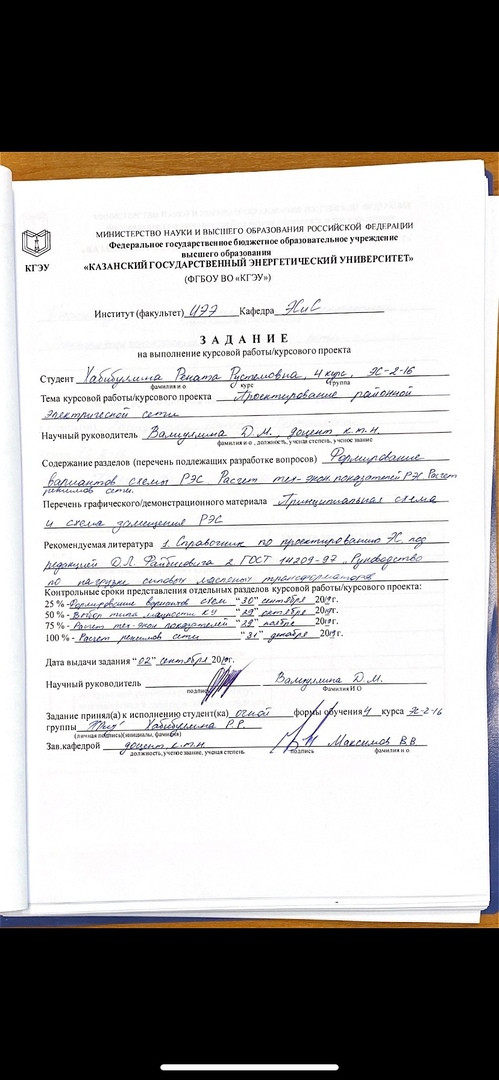 МИНИСТЕРСТВО НАУКИ И ВЫСШЕГО ОБРАЗОВАНИЯ РОССИЙСКОЙ ФЕДЕРАЦИИ
Федеральное государственное бюджетное образовательное учреждение
высшего образования
КГЭУ «КАЗАНСКИЙ ГОСУДАРСТВЕННЫЙ ЭНЕРГЕТИЧЕСКИЙ УНИВЕРСИТЕТ»
(ФГБОУ ВО «КГЭУ»)
Институт (факультет) ИЭЭ Кафедра ЭСиС
ЗАДАНИЕ
на выполнение курсовой работы/курсового проекта
Студент Хабибуллина Рената Рустемовна, 4 курс, ЭС-2-16
фамилия и о курс группа
Тема курсовой работы/курсового проекта Проектирование районной
электрической сети
Научный руководитель Валиуллина Д.М., доцент к.т.н.
фамилия и о, должность, ученая степень, ученое звание
Содержание разделов (перечень подлежащих разработке вопросов) Формирование
вариантов схемы РЭС Расчет тех-экон.показателей РЭС Расчет
режимов сети.
Перечень графического/демонстрационного материала Принципиальная схема
и схема замещения РЭС
Рекомендуемая литература 1. Справочник по проектированию ЭС под
редакцией Д.Л. Файбисовича 2. ГОСТ 14209-97 „Руководство
по нагрузке силовых масляных трансформаторов"
Контрольные сроки представления отдельных разделов курсовой работы/курсового проекта:
25 % - Формирование вариантов схем “30” сентября 2019г.
50 % - Выбор типа мощности КУ “29” октября 2019г.
75 % - Расчет тех-экон показателей “29” ноября 2019г.
100 % - Расчет режимов сети “31” декабря 2019г.
Дата выдачи задания “02” сентября 2019г.
Научный руководитель Валиуллина Д.М.
подпись Фамилия И О
Задание принял(а) к исполнению студент(ка) очной формы обучения 4 курса ЭС-2-16
группы Хабибуллина Р.Р.
(личная подпись)(инициалы, фамилия)
Зав.кафедрой доцент к.т.н Максимов В.В
должность, ученое звание, ученая степень подпись фамилия и о